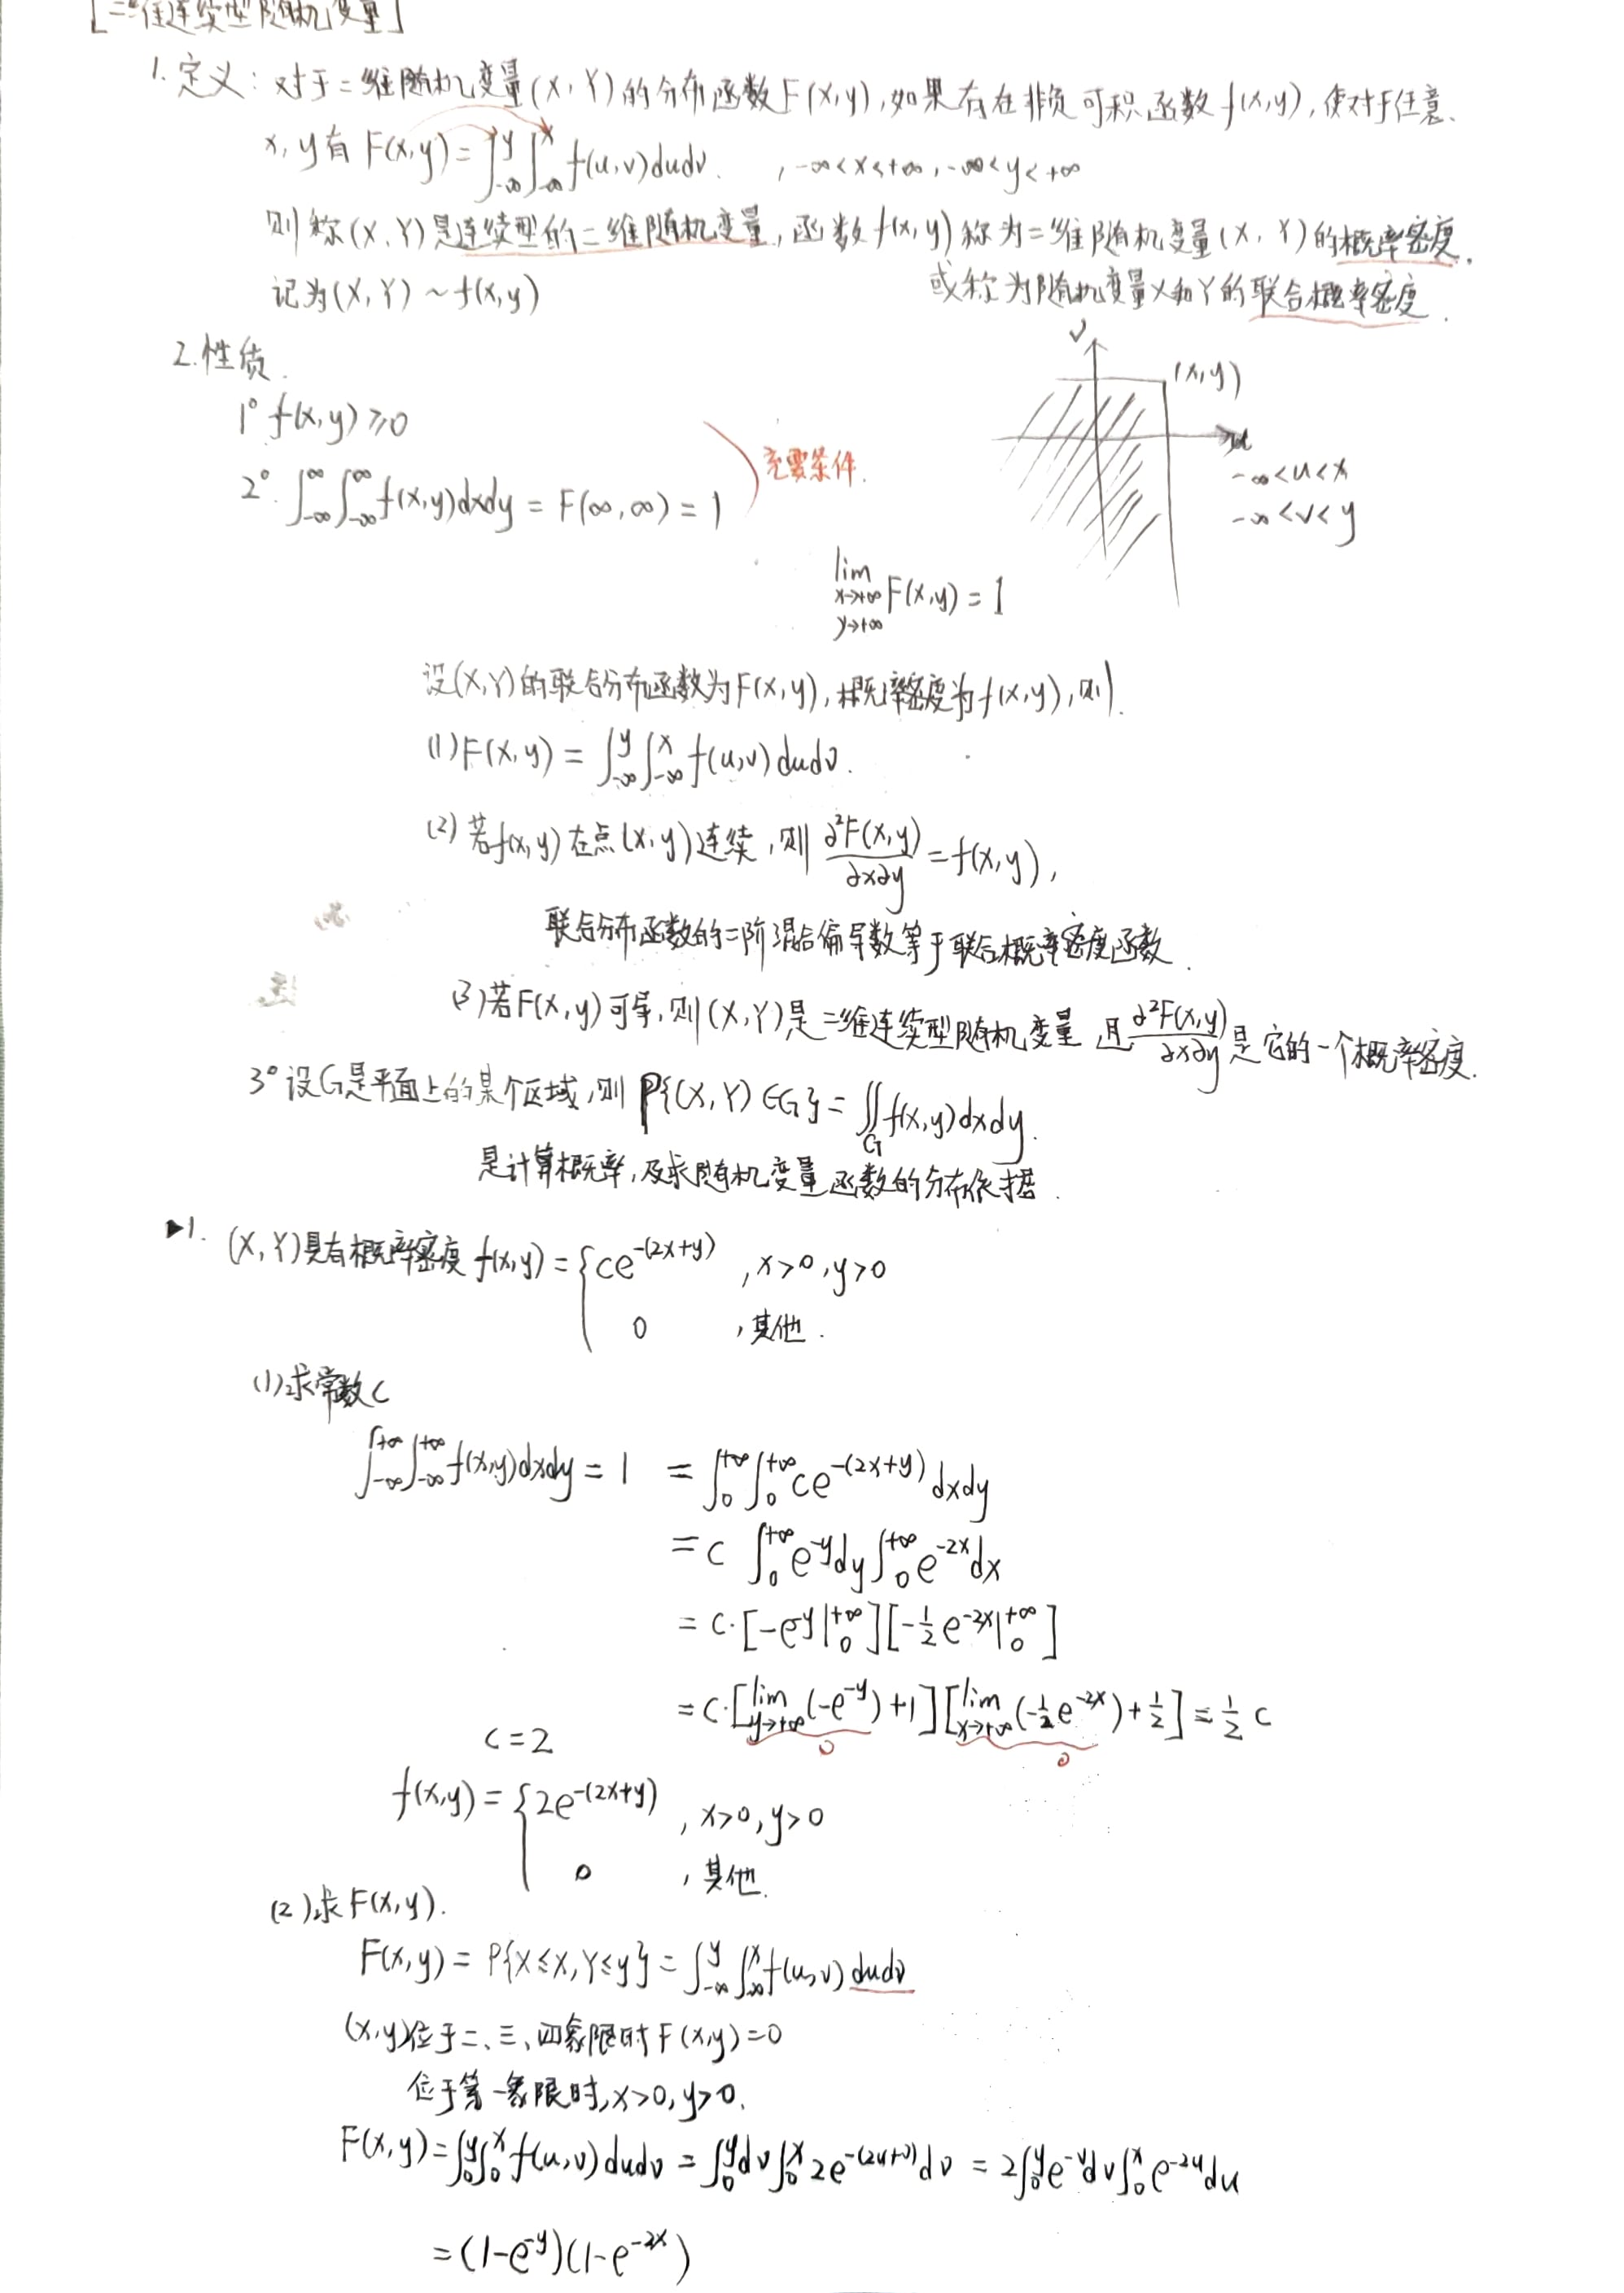 [二维连续型随机变量]
1. 定义：对于二维随机变量(X,Y)的分布函数F(x,y),如果存在非负可积函数f(x,y),使对于任意、
x,y有 F(x,y)=∫_{-∞}^{y}∫_{-∞}^{x}f(u,v)dudv. ,-∞<x<+∞,-∞<y<+∞
则称(X,Y)是连续型的二维随机变量,函数f(x,y)称为二维随机变量(X,Y)的概率密度.
记为(X,Y)~f(x,y) 或称为随机变量X和Y的联合概率密度.
2.性质.
1° f(x,y)≥0
2°. ∫_{-∞}^{∞}∫_{-∞}^{∞}f(x,y)dxdy=F(∞,∞)=1
充要条件.
v
(x,y)
u
-∞<u<x
-∞<v<y
lim_{x→+∞ y→+∞}F(x,y)=1
设(X,Y)的联合分布函数为F(x,y),概率密度为f(x,y),则.
(1)F(x,y)=∫_{-∞}^{y}∫_{-∞}^{x}f(u,v)dudv.
(2)若f(x,y)在点(x,y)连续,则∂²F(x,y)/∂x∂y=f(x,y),
联合分布函数的二阶混合偏导数等于联合概率密度函数.
(3)若F(x,y)可导,则(X,Y)是二维连续型随机变量 且∂²F(x,y)/∂x∂y是它的一个概率密度.
3° 设G是平面上的某个区域,则P{(X,Y)∈G}=∬_G f(x,y)dxdy.
是计算概率,及求随机变量函数的分布依据.
▶1. (X,Y)具有概率密度 f(x,y)={ce^{-(2x+y)} ,x>0,y>0
0 ,其他.
(1)求常数c
∫_{-∞}^{+∞}∫_{-∞}^{+∞}f(x,y)dxdy=1 =∫_0^{+∞}∫_0^{+∞}ce^{-(2x+y)}dxdy
=c ∫_0^{+∞}e^{-y}dy∫_0^{+∞}e^{-2x}dx
=c·[-e^{-y}|_0^{+∞}][-1/2 e^{-2x}|_0^{+∞}]
=c·[lim_{y→+∞}(-e^{-y})+1][lim_{x→+∞}(-1/2 e^{-2x})+1/2]=1/2 c
0 0
c=2
f(x,y)={2e^{-(2x+y)} ,x>0,y>0
0 ,其他.
(2)求F(x,y).
F(x,y)=P{X≤x,Y≤y}=∫_{-∞}^{y}∫_{-∞}^{x}f(u,v)dudv
(x,y)位于二、三、四象限时F(x,y)=0
位于第一象限时,x>0,y>0.
F(x,y)=∫_0^y∫_0^x f(u,v)dudv=∫_0^y dv∫_0^x 2e^{-(2u+v)}dv=2∫_0^y e^{-v}dv∫_0^x e^{-2u}du
=(1-e^{-y})(1-e^{-2x})